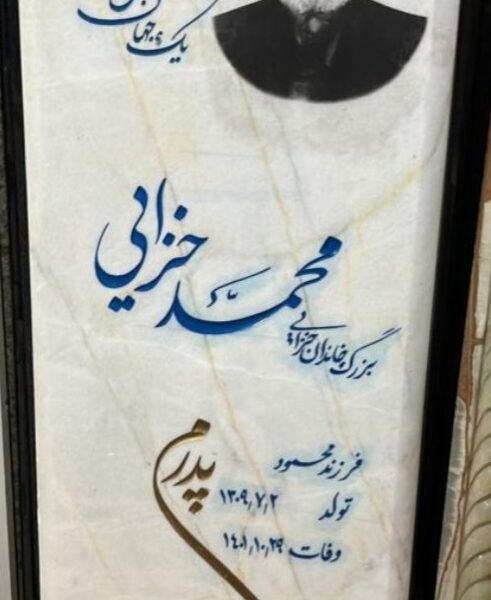 یک جهان
محمد خزایی
بزرگ خاندان خزایی
فرزند محمود
پدرم
تولد ۱۳۰۹٫۷٫۲
وفات ۱۴۰۱٫۱۰٫۲۹